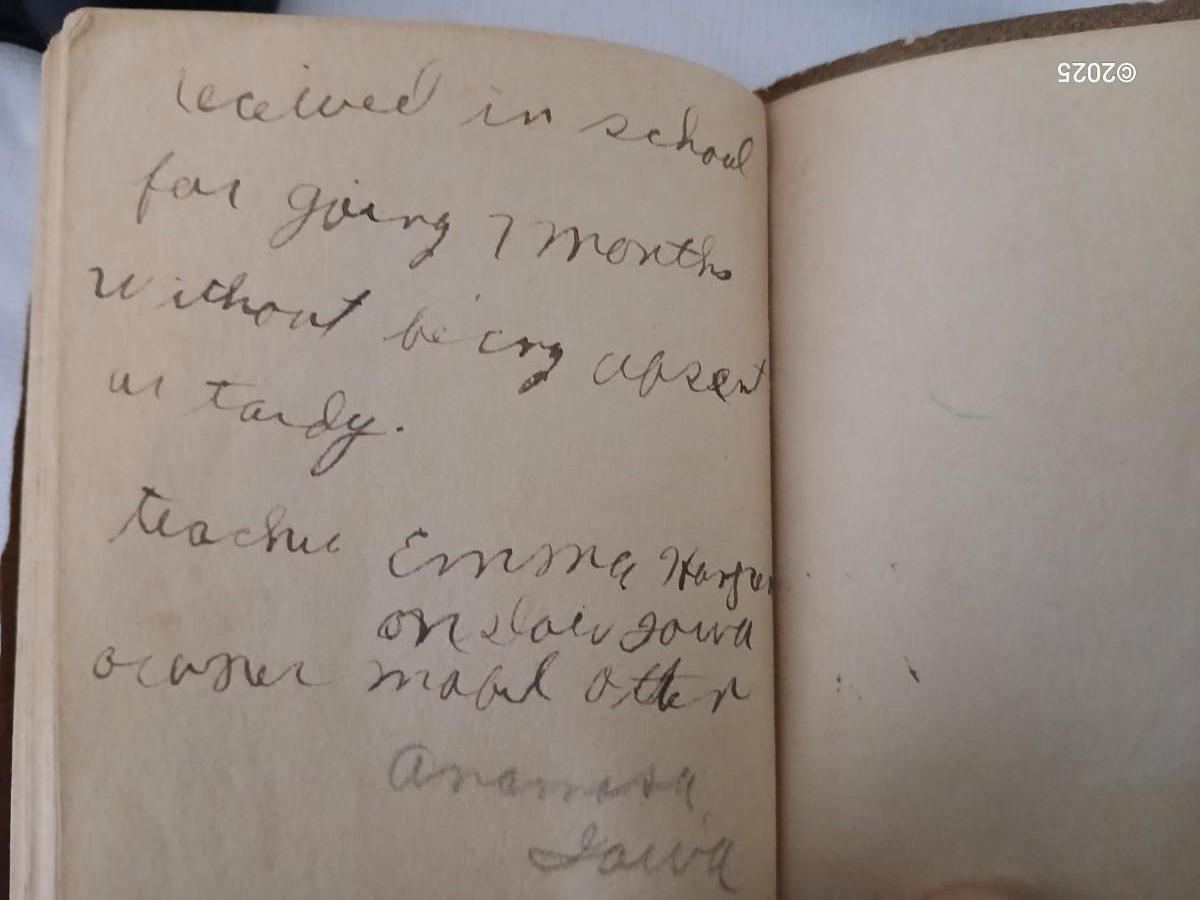 received in school
for going 7 months
without being absent
or tardy.
teacher Emma
onslow Iowa
owner mabel Otten
Anamosa,
Iowa
©2025